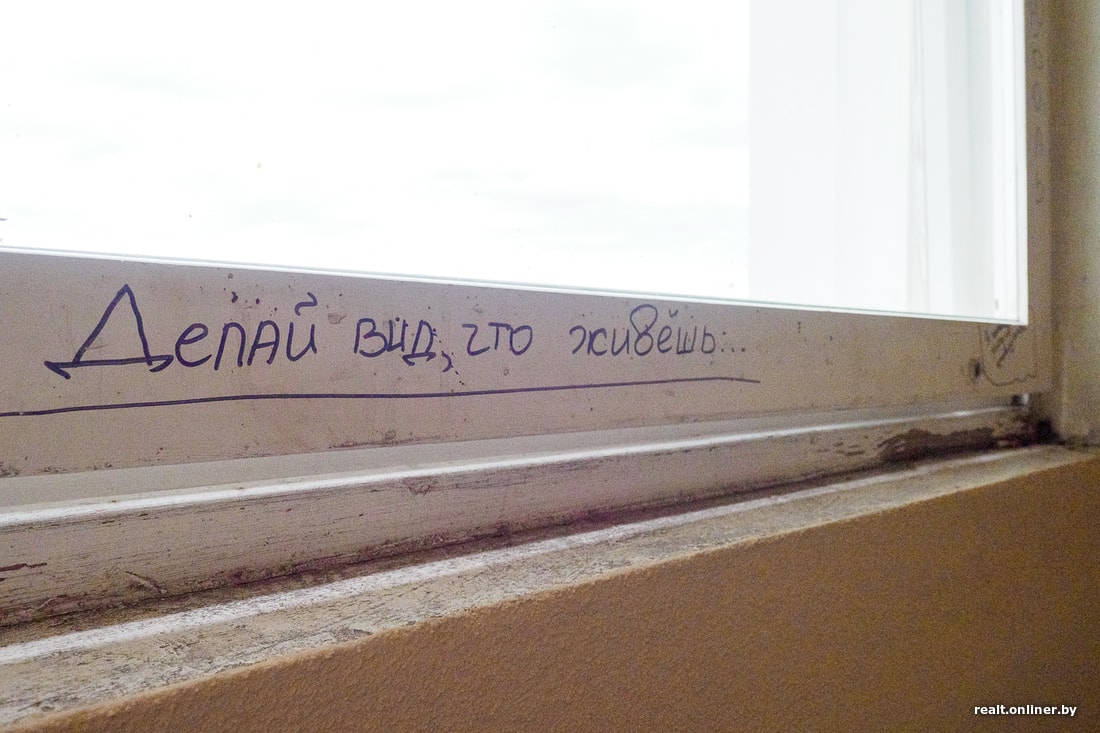 Делай вид, что живёшь...
realt.onliner.by